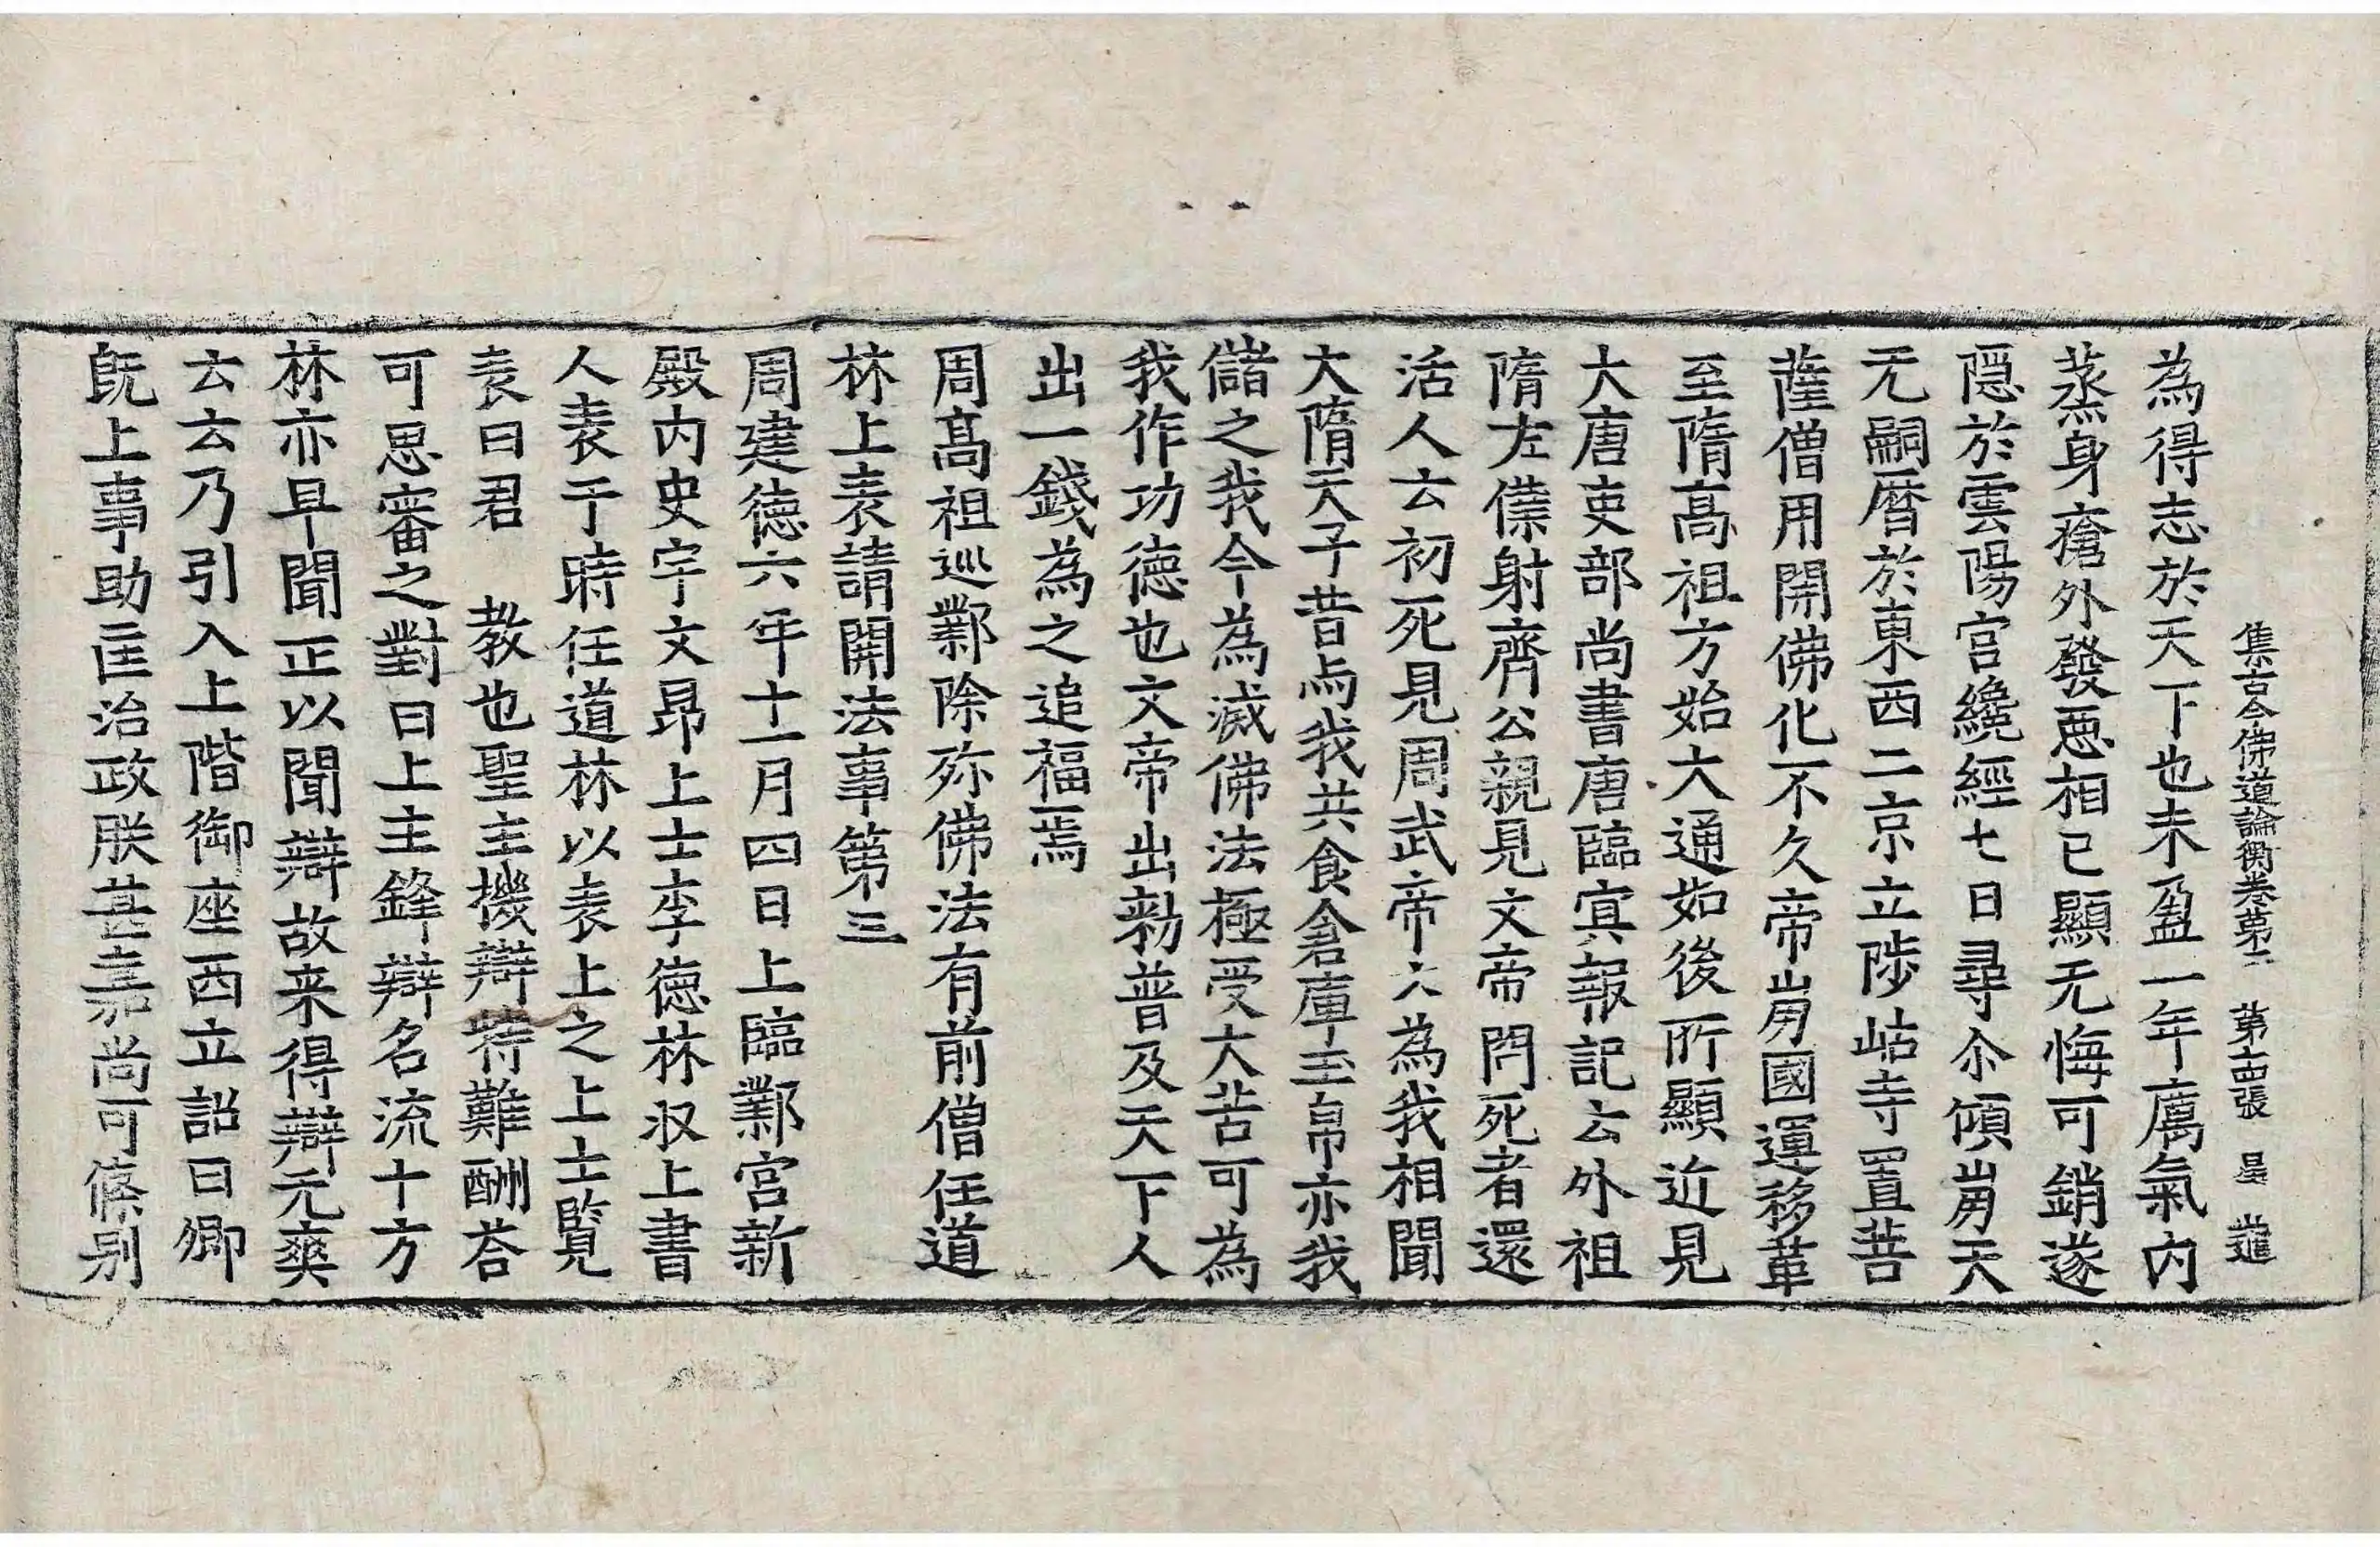 集古今佛道論衡卷第二 第十四張 星 進
為得志於天下也未盈一年癘氣內
蒸身瘡外發惡相已顯无悔可銷遂
隱於雲陽宮纔經七日尋尒傾崩天
元嗣曆於東西二京立陟岵寺置菩
薩僧用開佛化不久帝崩國運移革
至隋高祖方始大通如後所顯近見
大唐吏部尚書唐臨冥報記云外祖
隋左僕射齊公親見文帝問死者還
活人云初死見周武帝云為我相聞
大隋天子昔与我共食倉庫玉帛亦我
儲之我今為滅佛法極受大苦可為
我作功德也文帝出勑普及天下人
出一錢為之追福焉
周高祖巡鄴除殄佛法有前僧任道
林上表請開法事第三
周建德六年十一月四日上臨鄴宮新
殿內史宇文昂上士李德林収上書
人表于時任道林以表上之上士覽
表曰君 教也聖主機辯特難酬荅
可思審之對曰上主鋒辯名流十方
林亦早聞正以聞辯故来得辯无爽
云云乃引入上階御座西立詔曰卿
旣上事助匡治政朕甚嘉尚可條别